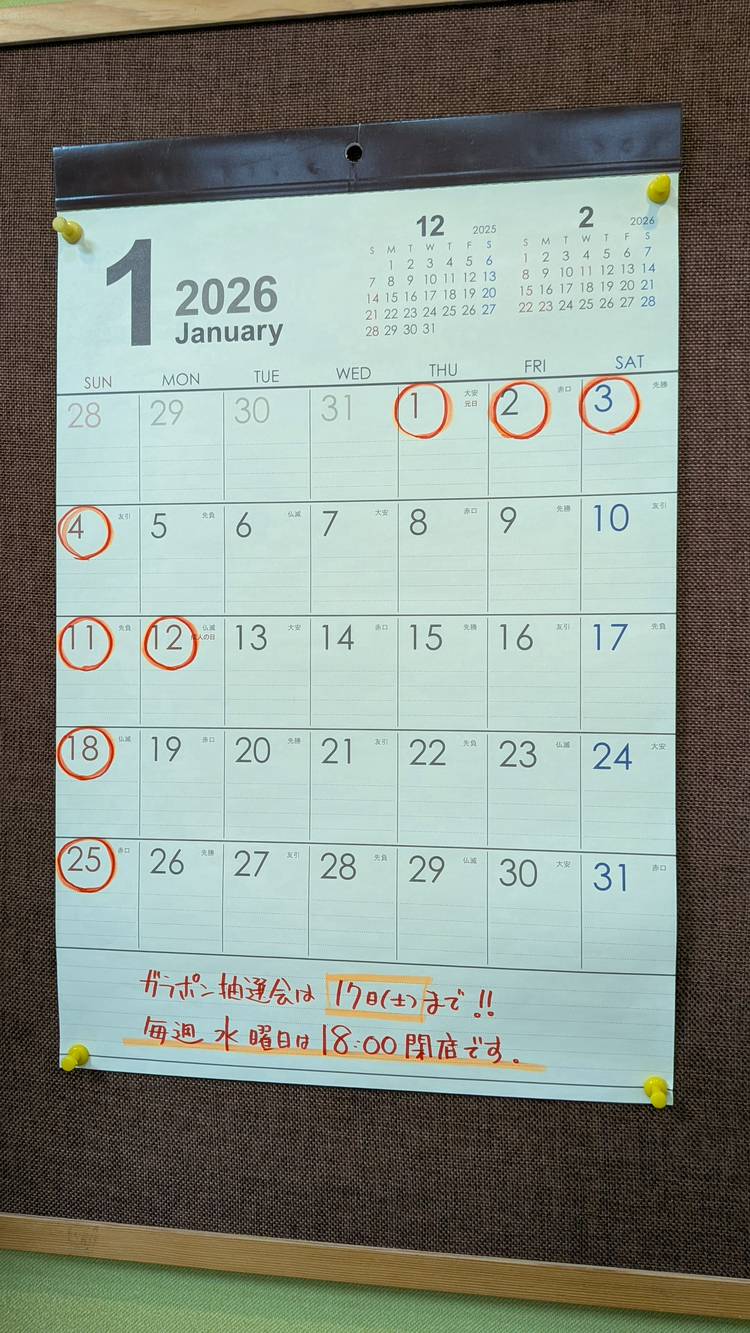 1
2026
January
12 2025
S M T W T F S
1 2 3 4 5 6
7 8 9 10 11 12 13
14 15 16 17 18 19 20
21 22 23 24 25 26 27
28 29 30 31
2 2026
S M T W T F S
1 2 3 4 5 6 7
8 9 10 11 12 13 14
15 16 17 18 19 20 21
22 23 24 25 26 27 28
SUN MON TUE WED THU FRI SAT
28 29 30 31 1 大安 元日 2 赤口 3 先勝
4 友引 5 先負 6 仏滅 7 大安 8 赤口 9 先勝 10 友引
11 先負 12 仏滅 成人の日 13 大安 14 赤口 15 先勝 16 友引 17 先負
18 仏滅 19 赤口 20 先勝 21 友引 22 先負 23 仏滅 24 大安
25 赤口 26 先勝 27 友引 28 先負 29 仏滅 30 大安 31 赤口
ガラポン抽選会は 17日(土)まで!!
毎週 水曜日は18:00閉店です。